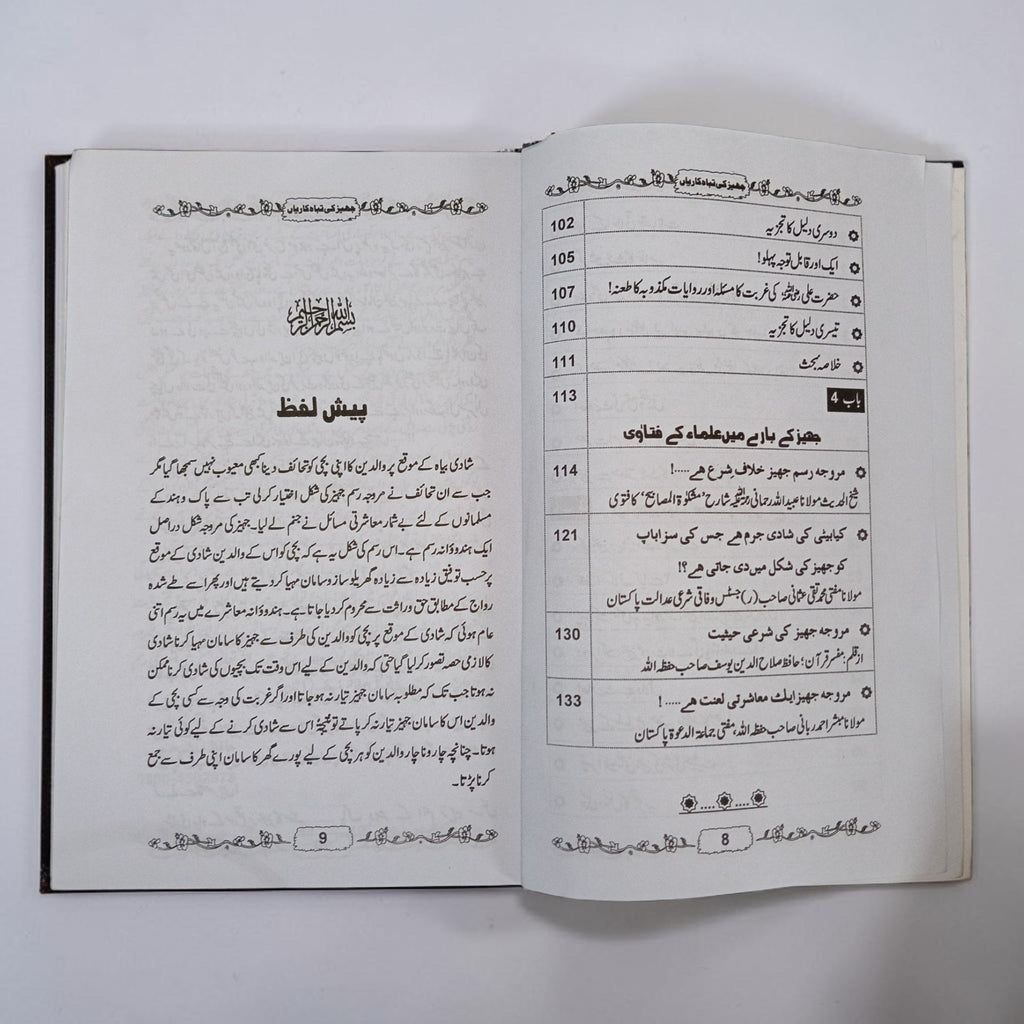 جہیز کی تباہ کاریاں
دوسری دلیل کا تجزیہ 102
ایک اور قابل توجہ پہلو! 105
حضرت علی رضی اللہ عنہ کی غربت کا مسئلہ اور روایات مکذوبہ کا طعنہ! 107
تیسری دلیل کا تجزیہ 110
خلاصہ بحث 111
باب 4 113
جہیز کے بارے میں علماء کے فتاوٰی
مروجہ رسم جہیز خلاف شرع ہے.....! 114
شیخ الحدیث مولانا عبیداللہ رحمانی رحمہ اللہ شارح ”مشکوٰۃ المصابیح“ کا فتوی
کیا بیٹی کی شادی جرم ہے جس کی سزا باپ 121
کو جہیز کی شکل میں دی جاتی ہے؟!
مولانا مفتی محمد تقی عثمانی صاحب (ر) جسٹس وفاقی شرعی عدالت پاکستان
مروجہ جہیز کی شرعی حیثیت 130
از قلم: مفسر قرآن؛ حافظ صلاح الدین یوسف صاحب حفظہ اللہ
مروجہ جہیز ایک معاشرتی لعنت ہے.....! 133
مولانا مبشر احمد ربانی صاحب حفظہ اللہ، مفتی جماعۃ الدعوۃ پاکستان
8
جہیز کی تباہ کاریاں
بسم اللہ الرحمن الرحیم
پیش لفظ
شادی بیاہ کے موقع پر والدین کا اپنی بچی کو تحائف دینا کبھی معیوب نہیں سمجھا گیا مگر
جب سے ان تحائف نے مروجہ رسم جہیز کی شکل اختیار کر لی تب سے پاک و ہند کے
مسلمانوں کے لئے بے شمار معاشرتی مسائل نے جنم لے لیا۔ جہیز کی مروجہ شکل دراصل
ایک ہندوؤانہ رسم ہے۔ اس رسم کی شکل یہ ہے کہ بچی کو اس کے والدین شادی کے موقع
پر حسب توفیق زیادہ سے زیادہ گھریلو ساز و سامان مہیا کر دیتے ہیں اور پھر اسے طے شدہ
رواج کے مطابق حق وراثت سے محروم کر دیا جاتا ہے۔ ہندوؤانہ معاشرے میں یہ رسم اتنی
عام ہوئی کہ شادی کے موقع پر بچی کو والدین کی طرف سے جہیز کا سامان مہیا کرنا شادی
کا لازمی حصہ تصور کر لیا گیا حتی کہ والدین کے لیے اس وقت تک بچیوں کی شادی کرنا ممکن
نہ ہوتا جب تک کہ مطلوبہ سامان جہیز تیار نہ ہو جاتا اور اگر غربت کی وجہ سے کسی بچی کے
والدین اس کا سامان جہیز تیار نہ کر پاتے تو نتیجۃً اس سے شادی کرنے کے لیے کوئی تیار نہ
ہوتا۔ چنانچہ چار و ناچار والدین کو ہر بچی کے لیے پورے گھر کا سامان اپنی طرف سے جمع
کرنا پڑتا۔
9